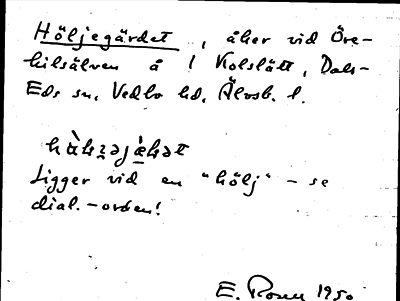 Höljegärdet, åker vid Öre-
kilsälven å 1 Kolslätt, Dals-
Eds sn, Vedbo hd, Älvsb. l.
Ligger vid en "hölj" – se
dial.-orden!
E. Rosen 1950